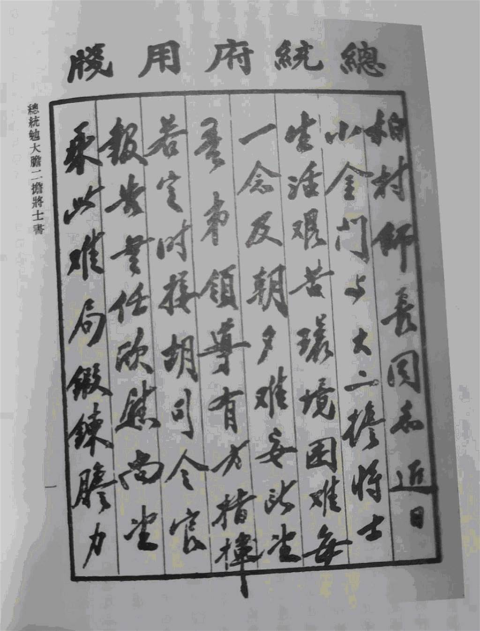 總統府用牋
柏村師長同志近日
小金門与大二擔將士
生活艱苦環境困難每
一念及朝夕難安望
吾弟領導有方指揮
若定時接胡司令官
報告無任欣慰尚望
乘此難局鍛鍊膽力
總統勉大膽二擔將士書